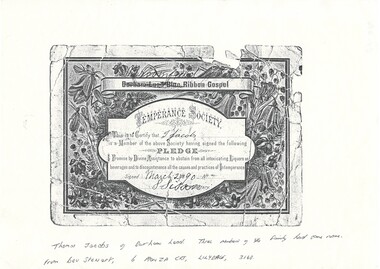 Durham Lead Blue Ribbon Gospel
TEMPERANCE SOCIETY.
This is to Certify that T Jacobs
is a Member of the above Society having signed the following
PLEDGE
I Promise by Divine Assistance to abstain from all intoxicating Liquors as
beverages and to discountenance all the causes and practices of Intemperance
Signed March 2nd 90
Thomas Jacobs of Durham Lead. Three members of the family had same name.
From Bev Stewart, 6 Monza Ct,